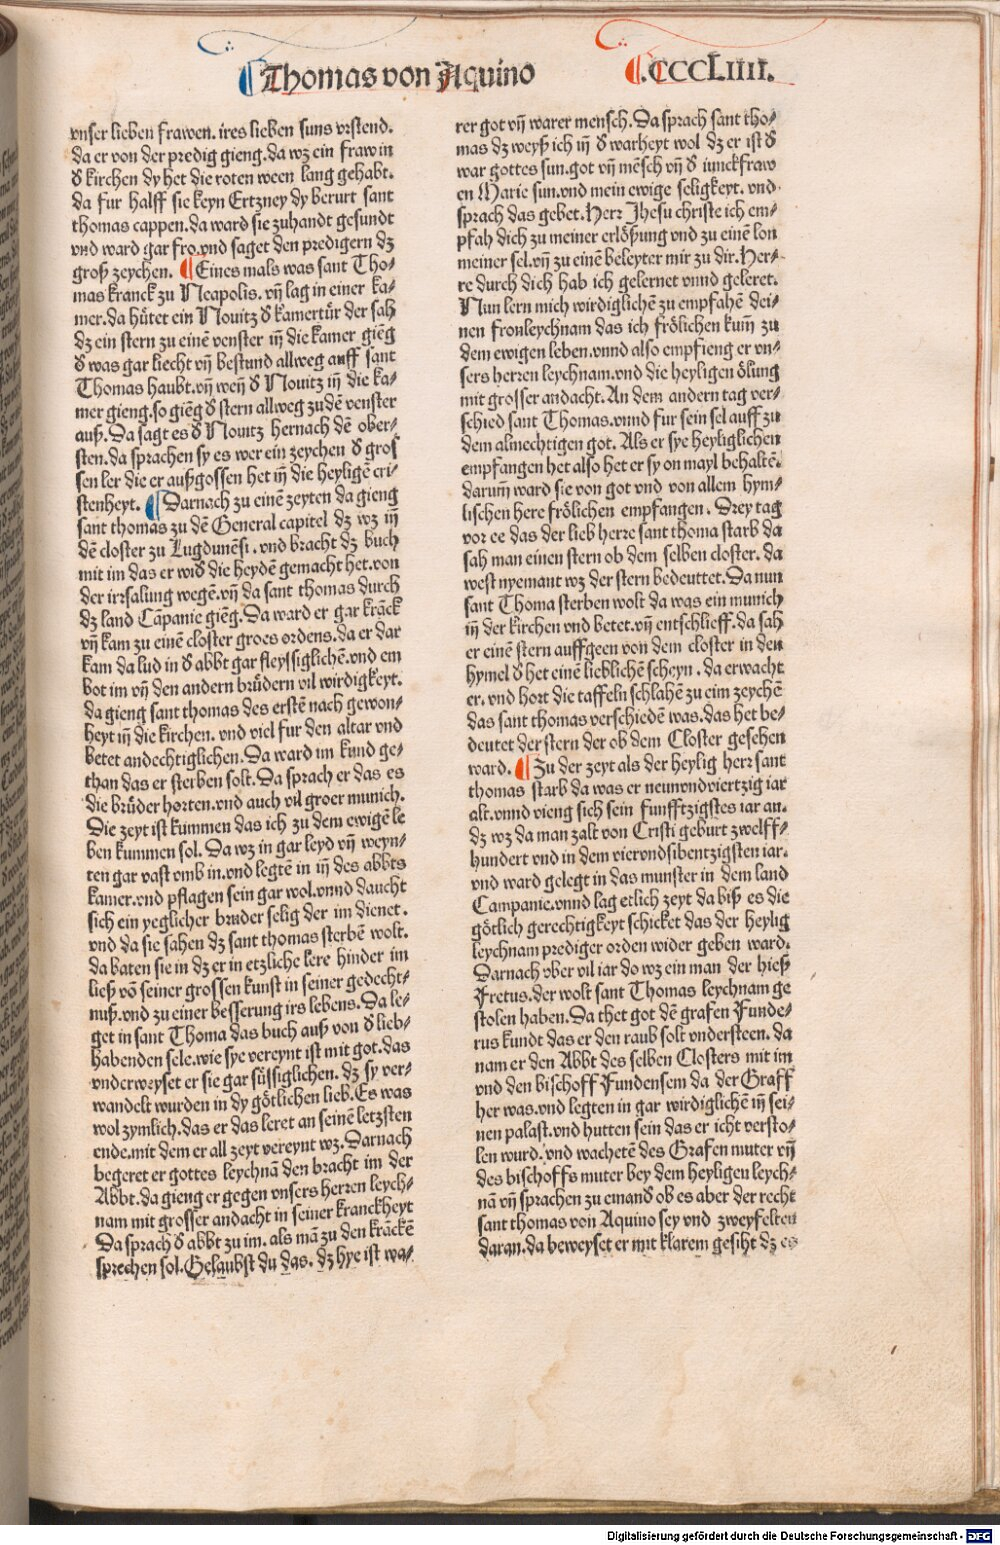 Thomas von Aquino .CCCLIIII.
vnser lieben frawen. ires lieben suns vrstend.
da er von der predig gieng. da wz ein fraw in
đ kirchen dy het die roten ween lang gehabt.
da fur halff sie keyn Ertzney dy berurt sant
thomas cappen. da ward sie zuhandt gesundt
vnd ward gar fro. vnd saget den predigern dz
groß zeychen. Eines mals was sant Tho⸗
mas kranck zu Neapolis. vñ lag in einer ka⸗
mer. da hütet ein Nouitz đ kamertür der sah
dz ein stern zu einē venster iñ die kamer giēg
đ was gar liecht vñ bestund allweg auff sant
Thomas haubt. vñ weñ đ Nouitz iñ die ka⸗
mer gieng. so giēg đ stern allweg zu dē venster
auß. Da sagt es đ Nouitz hernach dē ober⸗
sten. da sprachen sy es wer ein zeychen đ gros
sen ler die er außgossen het iñ die heyligē cri⸗
stenheyt. Darnach zu einē zeyten da gieng
sant thomas zu dē General capitel dz wz iñ
dē closter zu Lugdunēsi. vnd bracht dz buch
mit im das er wiđ die heydē gemacht het. von
der irrsalung wegē. vñ da sant thomas durch
dz land Cāpanie giēg. Da ward er gar krāck
vñ kam zu einē closter groes ordens. da er dar
kam da lud in đ abbt gar fleyssiglichē. vnd em
bot im vñ den andern brüdern vil wirdigkeyt.
da gieng sant thomas des erstē nach gewon⸗
heyt iñ die kirchen. vnd viel fur den altar vnd
betet andechtiglichen. Da ward im kund ge⸗
than das er sterben solt. Da sprach er das es
die brüder horten. vnd auch vil groer munich.
Die zeyt ist kummen das ich zu dem ewigē le
ben kummen sol. Da wz in gar leyd vñ weyn⸗
ten gar vast vmb in. vnd legtē in iñ des abbts
kamer. vnd pflagen sein gar wol. vnnd daucht
sich ein yeglicher bruder selig der im dienet.
vnd da sie sahen dz sant thomas sterbē wolt.
da baten sie in dz er in etzliche lere hinder im
ließ vō seiner grossen kunst in seiner gedecht⸗
nuß. vnd zu einer besserung irs lebens. Da le⸗
get in sant Thoma das buch auß von đ lieb⸗
habenden sele. wie sye vereynt ist mit got. das
vnderweyset er sie gar süssiglichen. dz sy ver⸗
wandelt wurden in dy götlichen lieb. Es was
wol zymlich. das er das leret an seinē letzsten
ende. mit dem er all zeyt vereynt wz. Darnach
begeret er gottes leychnā den bracht im der
Abbt. da gieng er gegen vnsers herren leych⸗
nam mit grosser andacht in seiner kranckheyt
Da sprach đ abbt zu im. als mā zu den krāckē
sprechen sol. Gelaubst du das. dz hye ist wa⸗
rer got vñ warer mensch. Da sprach sant tho⸗
mas dz weyß ich iñ đ warheyt wol dz er ist đ
war gottes sun. got vñ mēsch vñ đ iunckfraw
en Marie sun. vnd mein ewige seligkeyt. vnd
sprach das gebet. Herr Jhesu christe ich em⸗
pfah dich zu meiner erlößung vnd zu einē lon
meiner sel. vñ zu einē beleyter mir zu dir. Her⸗
re durch dich hab ich gelernet vnnd geleret.
Nun lern mich wirdiglichē zu empfahē dei⸗
nen fronleychnam das ich frölichen kum̄ zu
dem ewigen leben. vnnd also empfieng er vn⸗
sers herren leychnam. vnd die heyligen ölung
mit grosser andacht. An dem andern tag ver⸗
schied sant Thomas. vnnd fur sein sel auff zu
dem almechtigen got. Als er sye heyliglichen
empfangen het also het er sy on mayl behaltē.
darum̄ ward sie von got vnd von allem hym⸗
lischen here frölichen empfangen. Drey tag
vor ee das der lieb herre sant thoma starb da
sah man einen stern ob dem selben closter. da
west nyemant wz der stern bedeuttet. Da nun
sant Thoma sterben wolt da was ein munich
iñ der kirchen vnd betet. vñ entschlieff. da sah
er einē stern auffgeen von dem closter in den
hymel đ het einē lieblichē scheyn. da erwacht
er. vnd hort die taffeln schlahē zu eim zeychē
das sant thomas verschiedē was. das het be⸗
deutet der stern der ob dem Closter gesehen
ward. Zu der zeyt als der heylig herr sant
thomas starb da was er neunvndviertzig iar
alt. vnnd vieng sich sein funfftzigstes iar an.
dz wz da man zalt von Cristi geburt zwelff⸗
hundert vnd in dem viervndsibentzigsten iar.
vnd ward gelegt in das munster in dem land
Campanie. vnnd lag etlich zeyt da biß es die
götlich gerechtigkeyt schicket das der heylig
leychnam prediger orden wider geben ward.
Darnach vber vil iar do wz ein man der hieß
Fretus. der wolt sant Thomas leychnam ge
stolen haben. Da thet got dē grafen Funde⸗
rus kundt das er den raub solt vndersteen. da
nam er den Abbt des selben Closters mit im
vnd den bischoff Fundensem da der Graff
her was. vnd legten in gar wirdiglichē iñ sei⸗
nen palast. vnd hutten sein das er icht versto⸗
len wurd. vnd wachetē des Grafen muter vñ
des bischoffs muter bey dem heyligeu leych⸗
nā vñ sprachen zu einanđ ob es aber der recht
sant thomas von Aquino sey vnd zweyfelten
daran. da beweyset er mit klarem gesiht dz es
Digitalisierung gefördert durch die Deutsche Forschungsgemeinschaft - DFG